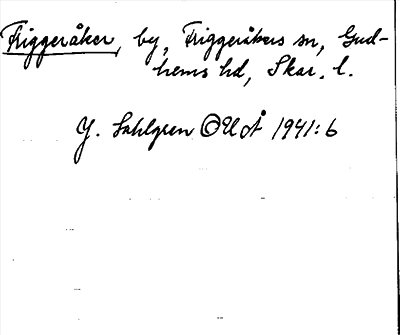 Friggeråker, by, Friggeråkers sn, Gud-
hems hd, Skar. l.
J. Sahlgren UUÅ 1941:6